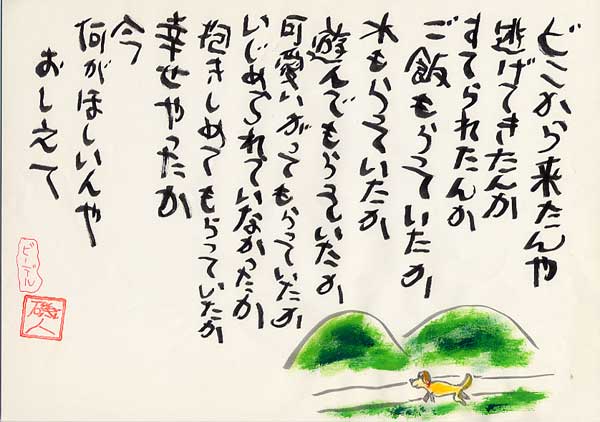 どこから来たんや
逃げてきたんか
すてられたんか
ご飯もらっていたか
水もらっていたか
遊んでもらっていたか
可愛いがってもらっていたか
いじめられていなかったか
抱きしめてもらっていたか
幸せやったか
今
何がほしいんや
おしえて
ビーグル
磯人